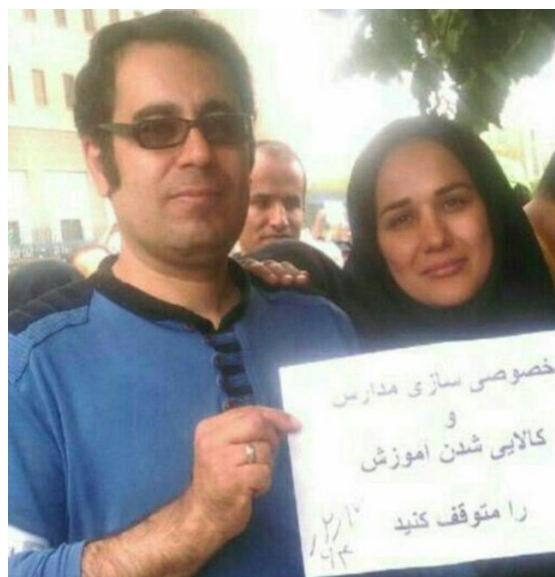 خصوصی سازی مدارس
و
کالایی شدن آموزش
را متوقف کنید